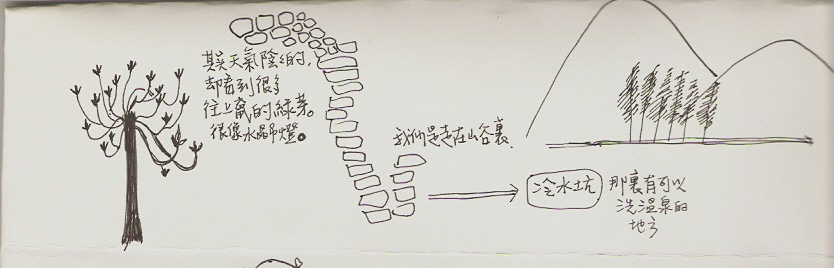 其實天氣陰陰的,
卻看到很多
往上竄的綠芽。
很像水晶吊燈。
我們是走在山谷裏.
冷水坑
那裏有可以
洗溫泉的
地方